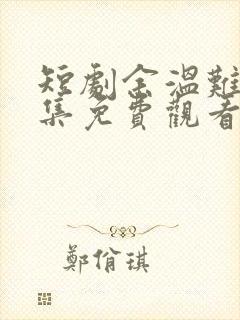 短劇余溫難
集免費觀看
鄭佾琪